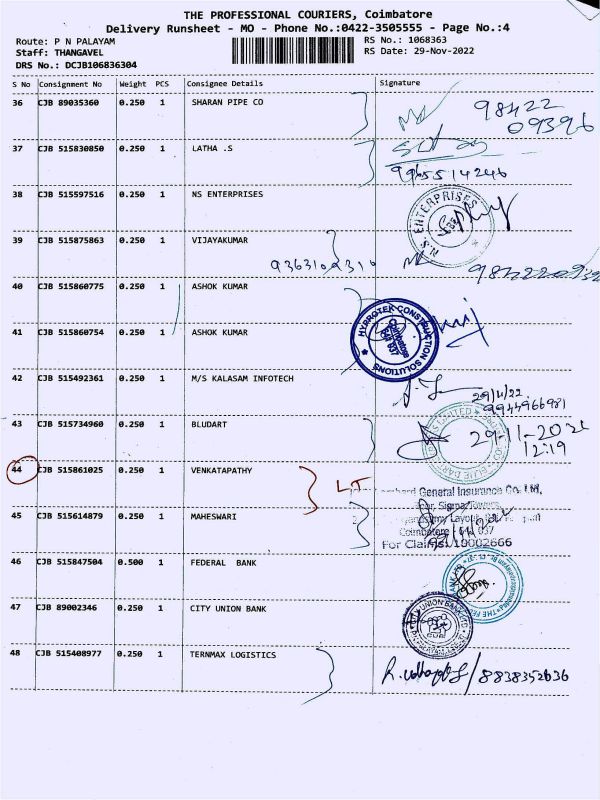 THE PROFESSIONAL COURIERS, Coimbatore
Delivery Runsheet - MO - Phone No.:0422-3505555 - Page No.:4
Route: P N PALAYAM RS No.: 1068363
Staff: THANGAVEL RS Date: 29-Nov-2022
DRS No.: DCJB106836304
S No Consignment No Weight PCS Consignee Details Signature
36 CJB 89035360 0.250 1 SHARAN PIPE CO 98422
09396
37 CJB 515830850 0.250 1 LATHA .S
9965514246
38 CJB 515597516 0.250 1 NS ENTERPRISES
N.S. ENTERPRISES
39 CJB 515875863 0.250 1 VIJAYAKUMAR
9363102310
40 CJB 515860775 0.250 1 ASHOK KUMAR
HYPROTEK CONSTRUCTION SOLUTIONS
Coimbatore
641 037
41 CJB 515860754 0.250 1 ASHOK KUMAR
42 CJB 515492361 0.250 1 M/S KALASAM INFOTECH
29/11/22
9944966981
43 CJB 515734960 0.250 1 BLUDART
29-11-2022
12:19
44 CJB 515861025 0.250 1 VENKATAPATHY
General Insurance Co. Ltd,
45 CJB 515614879 0.250 1 MAHESWARI
Coimbatore - 641 037
For Claims/10002666
46 CJB 515847504 0.500 1 FEDERAL BANK
47 CJB 89002346 0.250 1 CITY UNION BANK
UNION BANK LTD
CUB
48 CJB 515408977 0.250 1 TERNMAX LOGISTICS
/8838352636